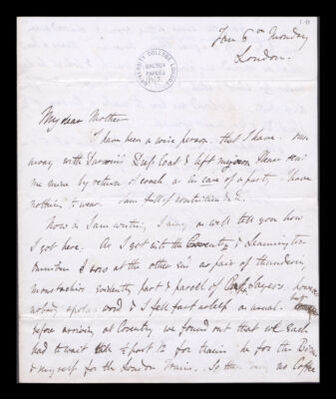 Jan 6th Monday
London.
UNIVERSITY COLLEGE LONDON
GALTON
PAPERS
My dear Mother
I have been a wise person, that I have. run
away with Darwin's Dress Coat & left my own. Please send
me mine by return of coach as in case of a party, I have
nothing to wear. I am full of contrition &c.
Now as I am writing, I may as well tell you how
I got here. As I got into the Coventry & Leamington
Omnibus I saw at the other end a pair of thundering
moustachios evidently part & parcel of
nobody spoke a word & I fell fast asleep as usual. but
before arriving at Coventry we found out that we each
had to wait till ½ past 12 for trains he for the
& myself for the London Train. So there was no Coffee